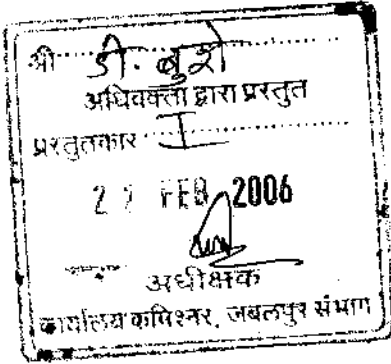 श्री डी. बुशे
अधिवक्ता द्वारा प्रस्तुत
प्रस्तुतकार I
FEB 2006
अधीक्षक
कार्यालय कमिश्नर, जबलपुर संभाग